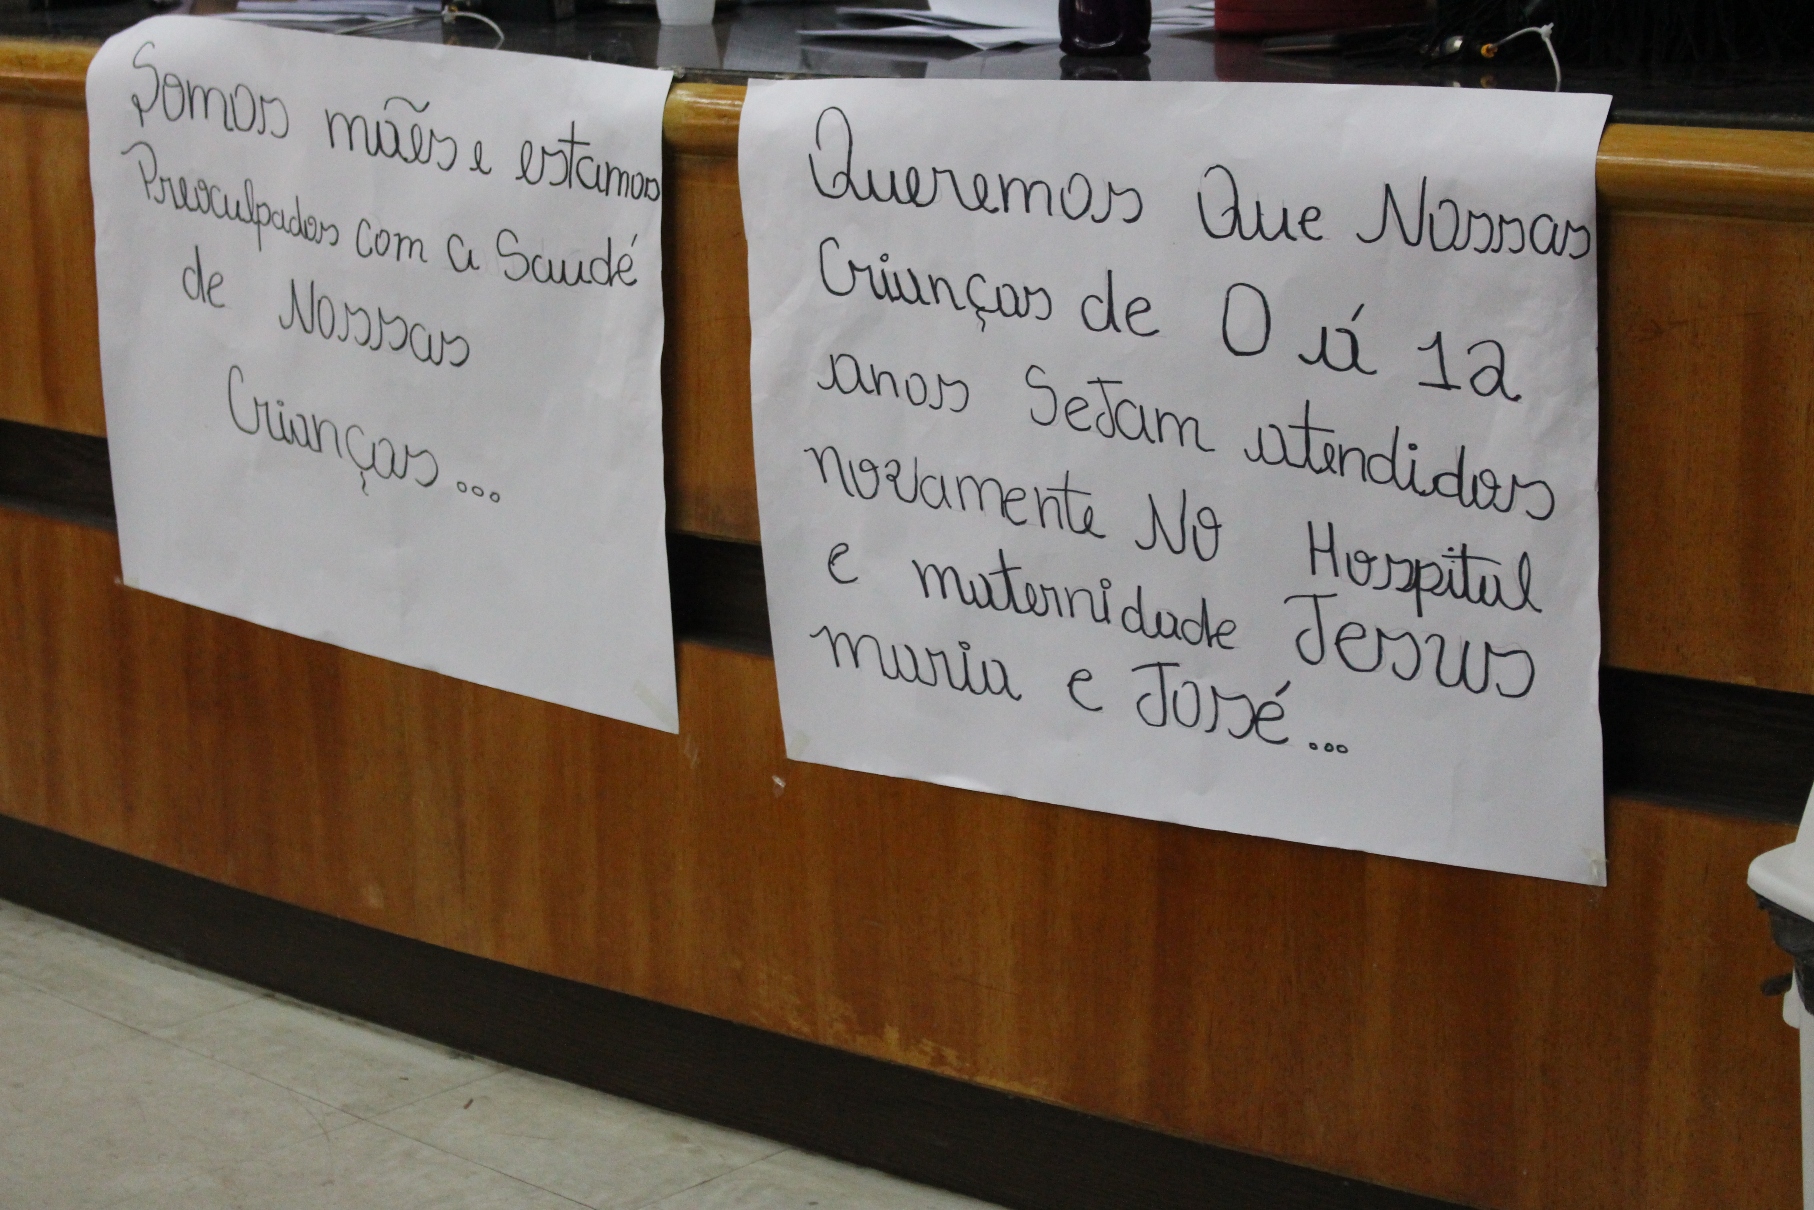 Somos mães e estamos
Preoculpados com a Saudé
de Nossas
Crianças...
Queremos Que Nossas
Crianças de 0 á 12
anos SeJam atendidos
novamente No Hospital
e maternidade Jesus
maria e José...